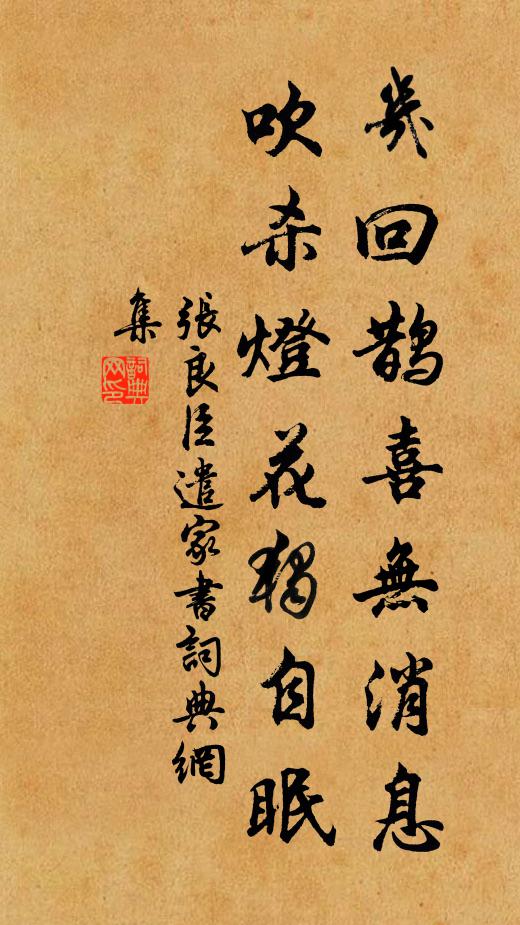 幾回鵲喜無消息
吹杀燈花独自眠
張良臣遣家書詞典網
集
詞典
网印